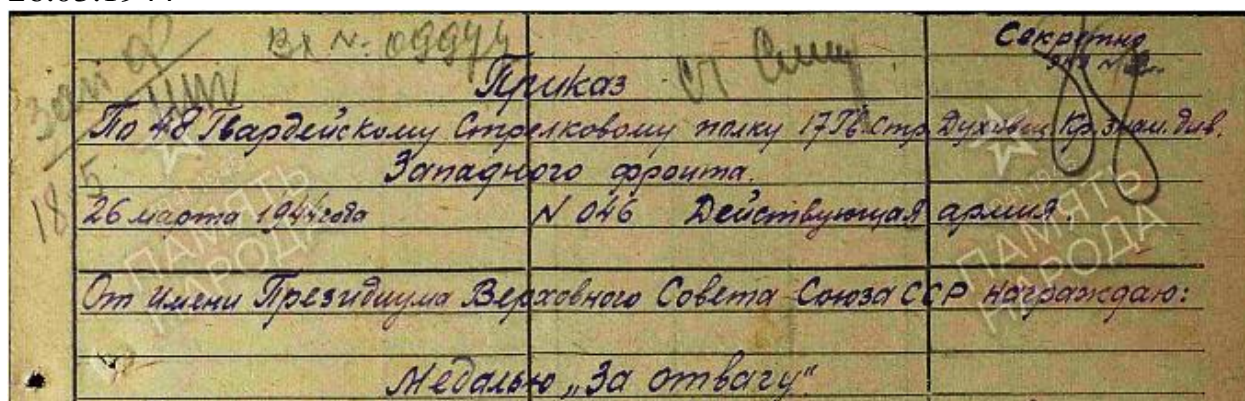 Вх № 09974
Секретно
Приказ
По 48 Гвардейскому Стрелковому полку 17 Гв. Стр. Духовщ. Кр. Знам. див.
Западного фронта.
26 марта 1944 года N 046 Действующая армия.
От имени Президиума Верховного Совета Союза ССР награждаю:
Медалью „За отвагу"
ПАМЯТЬ НАРОДА
ПАМЯТЬ НАРОДА